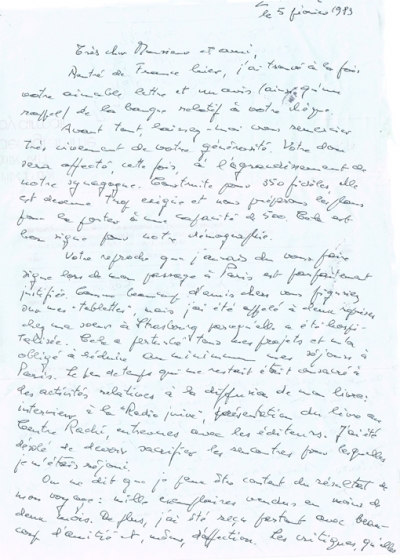 le 5 février 1983
Très cher Monsieur et ami,
Rentré de France hier, j'ai trouvé à la fois
votre aimable lettre et un avis (ainsi qu'un
rappel) de la banque relatif à votre chèque.
Avant tout, laissez-moi vous remercier
très vivement de votre générosité. Votre don
sera affecté, cette fois, à l'agrandissement de
notre synagogue. Construite pour 350 fidèles, elle
est devenue trop exiguë et nous préparons les plans
pour la porter à une capacité de 500. Cela est
bon signe pour notre démographie.
Votre reproche que j'aurais dû vous faire
signe lors de mon passage à Paris est parfaitement
justifié. Comme beaucoup d'amis chers vous figuriez
sur mes "tablettes", mais j'ai été appelé à deux reprises
chez ma sœur à Strasbourg parce qu'elle a été hospi-
talisée. Cela a perturbé tous mes projets et m'a
obligé à réduire au minimum mes séjours à
Paris. Le peu de temps qui me restait était consacré à
des activités relatives à la diffusion de mon livre:
interview à la "Radio juive", présentation du livre au
Centre Rachi, entrevues avec les éditeurs. J'ai été
désolé de devoir sacrifier les rencontres pour lesquelles
je m'étais réjoui.
On me dit que je peux être content du résultat de
mon voyage: mille exemplaires vendus en moins de
deux mois. De plus, j'ai été reçu partout avec beau-
coup d'amitié et, même, d'affection. Les critiques, qu'elles